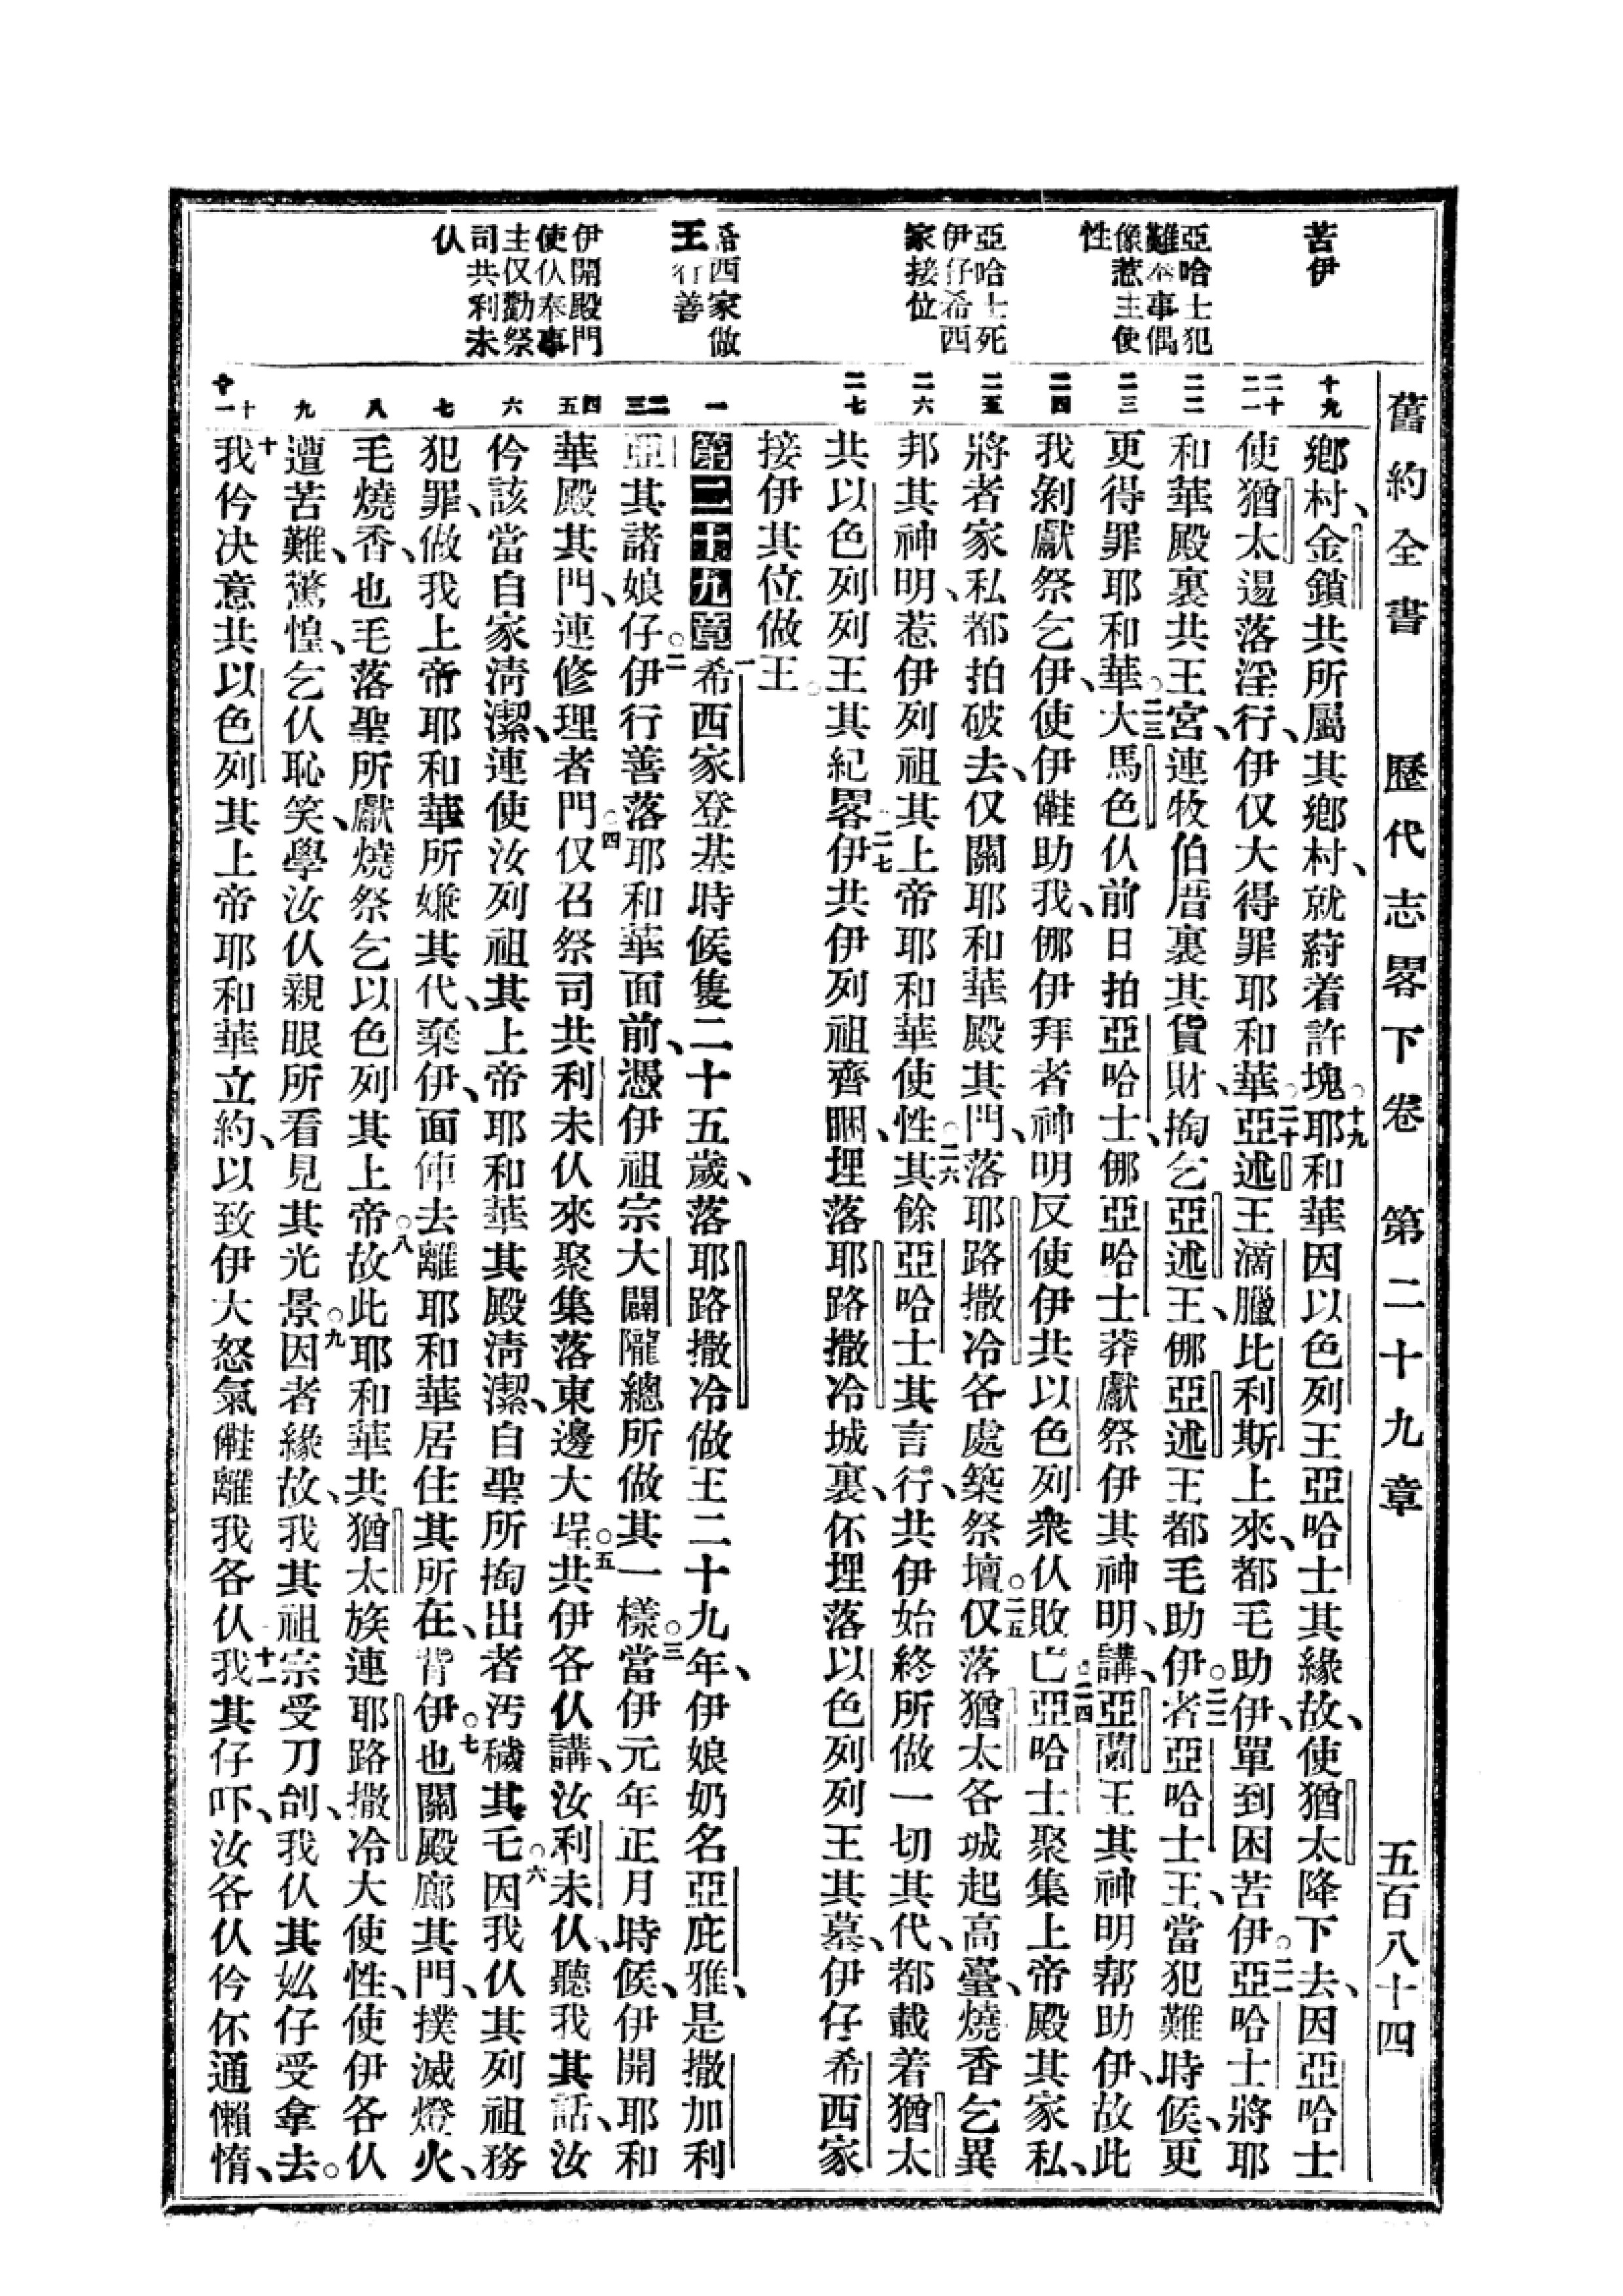 舊約全書　歷代志畧下卷　第二十九章　五百八十四
苦伊
亞哈士犯
難奉事偶
像惹主使
性
亞哈士死
伊仔希西
家接位
希西家做
王行善
伊開殿門
使仫奉事
主仅勸祭
司共利未
仫
十九
二十
二一
二二
二三
二四
二五
二六
二七
一
二
三
四
五
六
七
八
九
十
十一
鄉村、金鎖共所屬其鄉村、就蒔着許塊。十九耶和華因以色列王亞哈士其緣故、使猶太降下去、因亞哈士
使猶太逿落淫行、伊仅大得罪耶和華。二十亞述王滴臘比利斯上來、都毛助伊、單到困苦伊。二一亞哈士將耶
和華殿裏共王宮、連牧伯厝裏其貨財、掏乞亞述王、㑚亞述王都毛助伊。二二者亞哈士王、當犯難時候、更
更得罪耶和華。二三大馬色仫前日拍亞哈士、㑚亞哈士莽獻祭伊其神明、講、亞蘭王其神明幇助伊、故此
我剝獻祭乞伊、使伊𠆧助我、㑚伊拜者神明反使伊共以色列衆仫敗亡。二四亞哈士聚集上帝殿其家私、
將者家私都拍破去、仅關耶和華殿其門、落耶路撒冷各處築祭壇。二五仅落猶太各城起高臺、燒香乞異
邦其神明、惹伊列祖其上帝耶和華使性。二六其餘亞哈士其言行、共伊始終所做一切其代、都載着猶太
共以色列列王其紀畧。二七伊共伊列祖齊睏、埋落耶路撒冷城裏、伓埋落以色列列王其墓、伊仔希西家
接伊其位做王。
第二十九章　一希西家登基時候隻二十五歲、落耶路撒冷做王二十九年、伊娘奶名亞庇雅、是撒加利
亞其諸娘仔。二伊行善落耶和華面前、憑伊祖宗大闢隴總所做其一樣。三當伊元年正月時候、伊開耶和
華殿其門、連修理者門。四仅召祭司共利未仫來聚集落東邊大埕。五共伊各仫講、汝利未仫、聽我其話、汝
仱該當自家淸潔、連使汝列祖其上帝耶和華其殿淸潔、自聖所掏出者汚穢其乇。六因我仫其列祖務
犯罪、做我上帝耶和華所嫌其代、棄伊、面𠊧去離耶和華居住其所在、背伊。七也關殿廊其門、撲滅燈火、
毛燒香、也毛落聖所獻燒祭乞以色列其上帝。八故此耶和華共猶太族連耶路撒冷大使性、使伊各仫
遭苦難、驚惶、乞仫恥笑、學汝仫親眼所看見其光景。九因者緣故、我其祖宗受刀刣、我仫其㚻仔受拿去。
十我仱決意共以色列其上帝耶和華立約、以致伊大怒氣𠆧離我各仫。十一我其仔吓、汝各仫仱伓通懶惰、